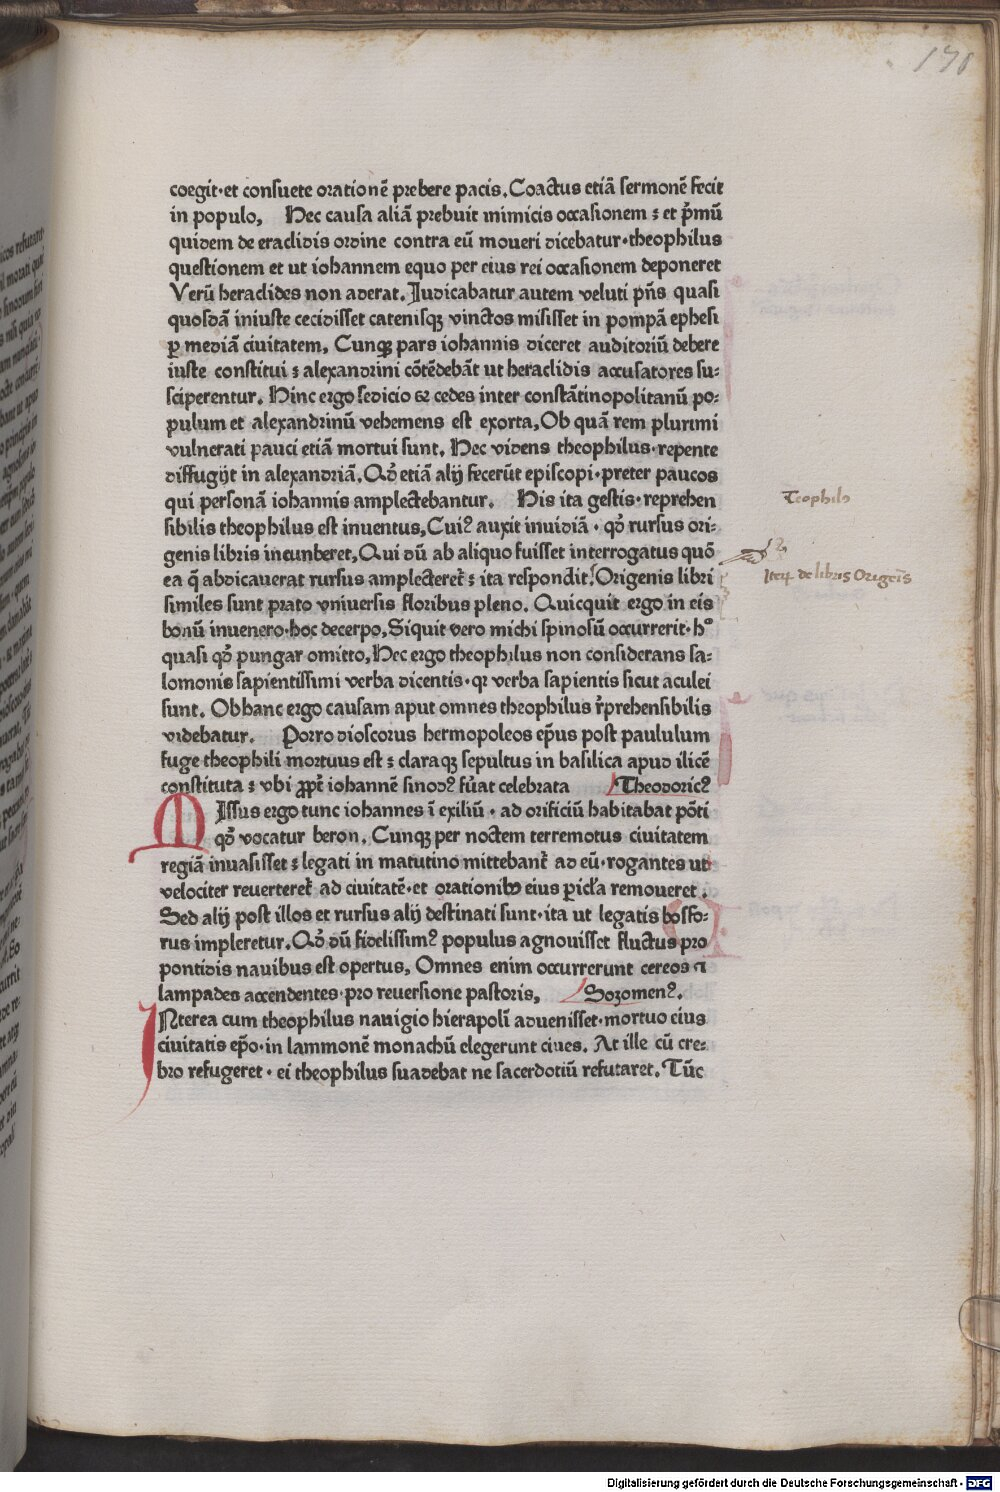 170
coegit·et consuete orationē prebere pacis. Coactus etiā sermonē fecit
in populo, Hec causa aliā prebuit inimicis occasionem : et p̄mū
quidem de eraclidis ordine contra eū moueri dicebatur·theophilus
questionem et ut iohannem equo per eius rei occasionem deponeret
Verū heraclides non aderat. Iudicabatur autem veluti pn̄s quasi
quosdā iniuste cecidisset catenisqꝫ vinctos misisset in pompā ephesi
ꝑ mediā ciuitatem, Cunqꝫ pars iohannis diceret auditoriū debere
iuste constitui : alexandrini cōtēdebāt ut heraclidis accusatores su:
sciperentur. Hinc ergo sedicio & cedes inter constātinopolitanū po:
pulum et alexandrinū vehemens est exorta, Ob quā rem plurimi
vulnerati pauci etiā mortui sunt. Hec videns theophilus·repente
diffugijt in alexandriā. Qd̄ etiā alij fecerūt episcopi·preter paucos
qui personā iohannis amplectebantur. His ita gestis·reprehen
sibilis theophilus est inuentus, Cuiꝰ auxit inuidiā · qd̄ rursus ori:
genis libris incumberet, Qui dū ab aliquo fuisset interrogatus quō
ea q̄ abdicauerat rursus amplecteret̄ : ita respondit! Origenis libri
similes sunt prato vniuersis floribus pleno. Quicquit ergo in eis
bonū inuenero·hoc decerpo, Siquit vero michi spinosū occurrerit·hᵒ
quasi qd̄ pungar omitto, Hec ergo theophilus non considerans sa:
lomonis sapientissimi verba dicentis·qꝛ verba sapientis sicut aculei
sunt. Obhanc ergo causam aput omnes theophilus r̄prehensibilis
videbatur. Porro dioscorus hermopoleos ep̄us post paululum
fuge theophili mortuus est : claraqꝫ sepultus in basilica apud ilicē
constituta : vbi ꝓpt̄ iohannē sinodꝰ fūat celebrata Theodoricꝰ
MIssus ergo tunc iohannes ī exiliū · ad orificiū habitabat pōti
qd̄ vocatur heron. Cunqꝫ per noctem terremotus ciuitatem
regiā inuasisset : legati in matutino mittebant̄ ad eū·rogantes ut
velociter reuerteret̄ ad ciuitatē·et orationibꝰ eius pericl'a remoueret.
Sed alij post illos et rursus alij destinati sunt·ita ut legatis bosfo:
rus impleretur. Qd̄ dū fidelissimꝰ populus agnouisset fluctus pro
pontidis nauibus est opertus, Omnes enim occurrerunt cereos ⁊
lampades accendentes·pro reuersione pastoris, Sozomenꝰ.
INterea cum theophilus nauigio hierapolī aduenisset·mortuo eius
ciuitatis ep̄o·in lammonē monachū elegerunt ciues. At ille cū cre:
bro refugeret · ei theophilus suadebat ne sacerdotiū refutaret. Tūc
Teophil
de libris Origēis
Digitalisierung gefördert durch die Deutsche Forschungsgemeinschaft · DFG